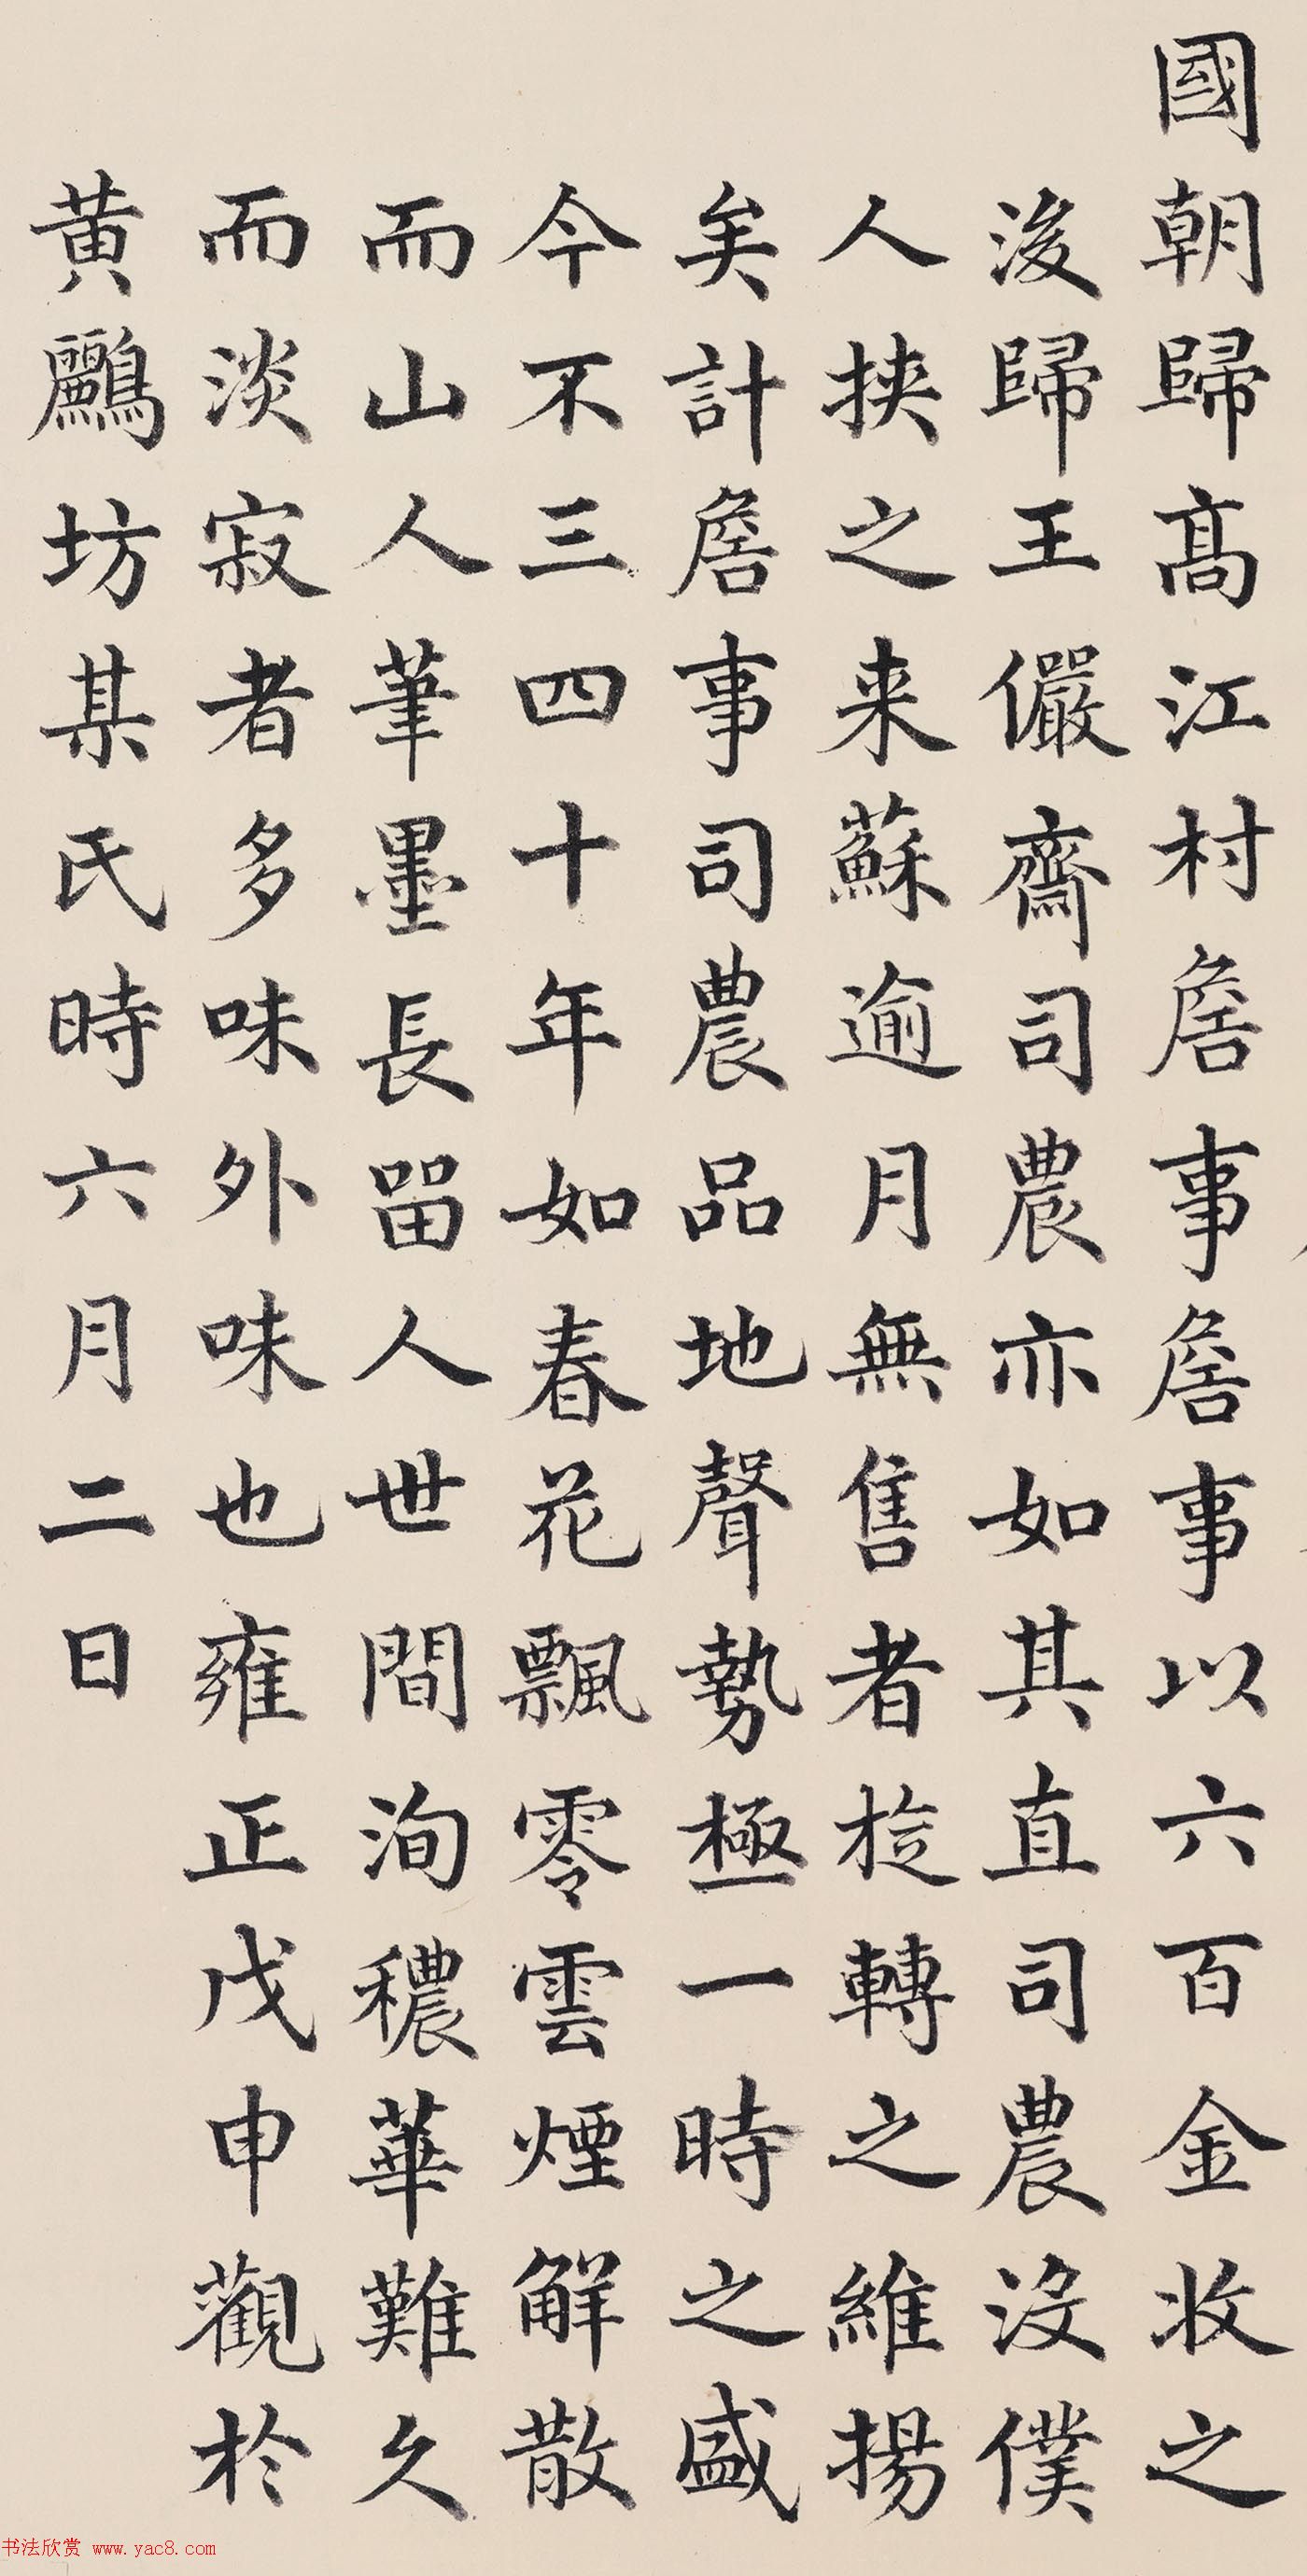 國朝歸高江村詹事詹事以六百金收之
後歸王儼齋司農亦如其直司農沒僕
人挾之来蘇逾月無售者旋轉之維揚
矣計詹事司農品地聲勢極一時之盛
今不三四十年如春花飄零雲煙解散
而山人筆墨長留人世間洵穠華難久
而淡寂者多味外味也雍正戊申觀於
黃鸝坊某氏時六月二日
书法欣赏 www.yac8.com